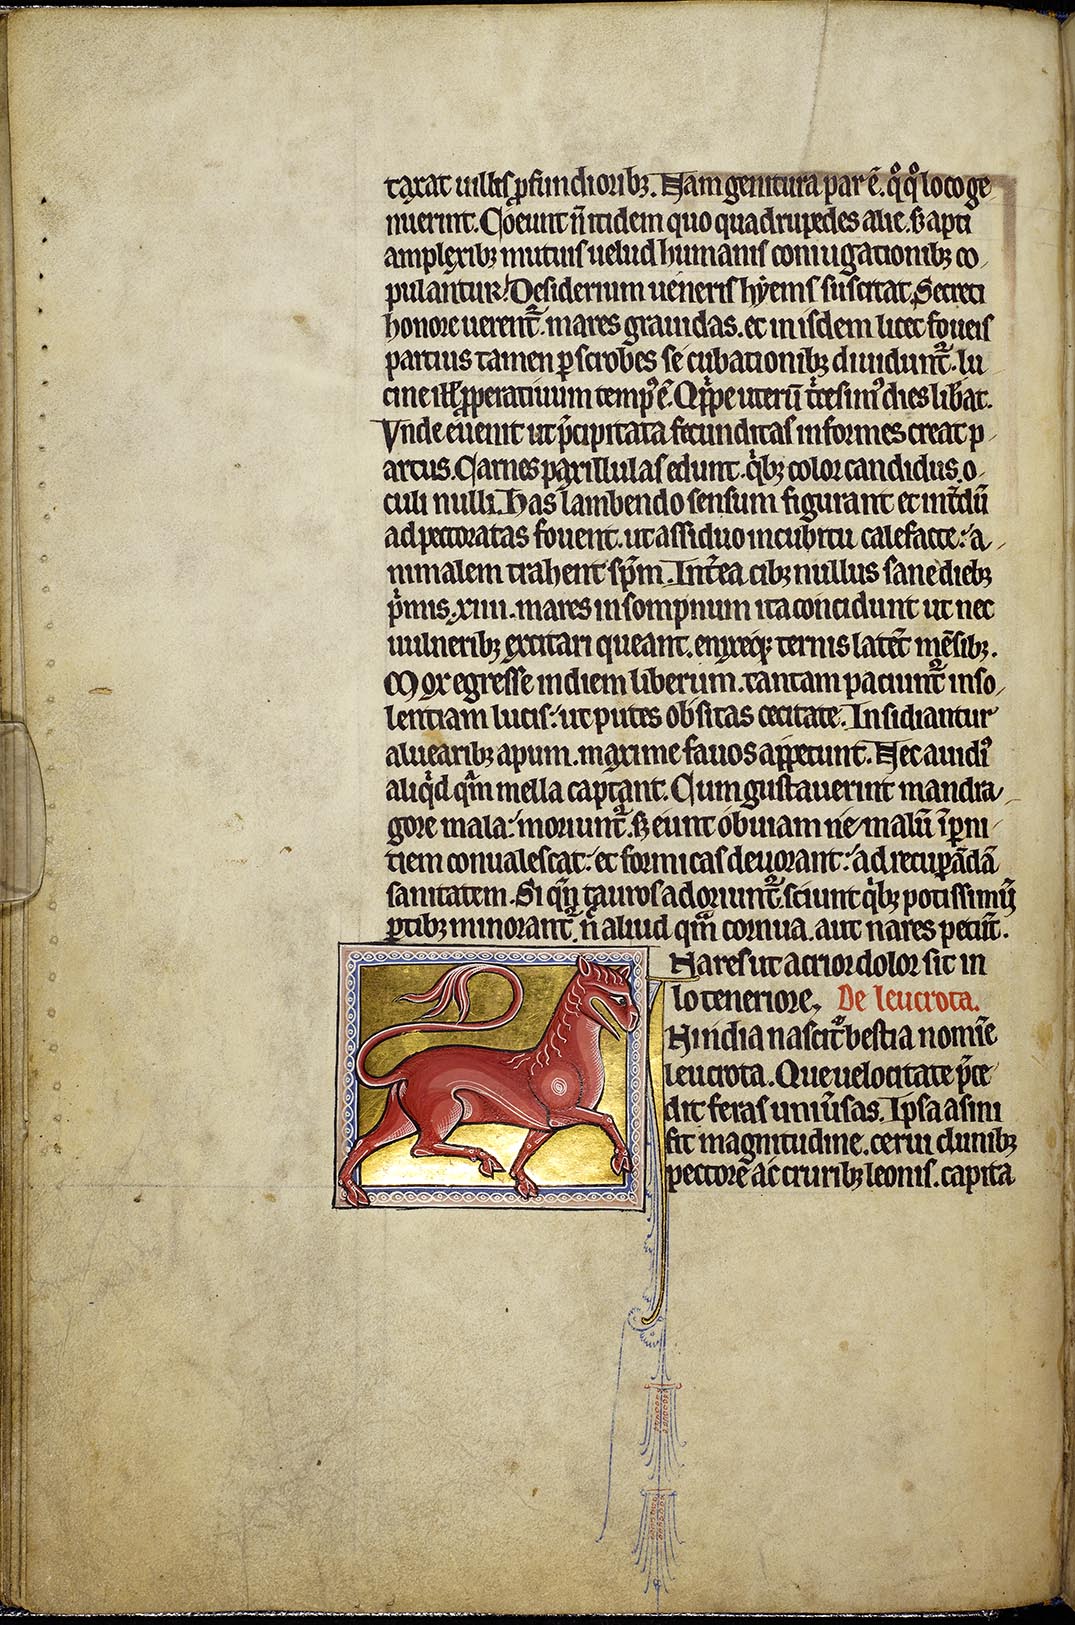 taxat uillis ꝓfundiorib; . Nam genitura par ē . qͦ qͦ loco ge
nuerint . Coeunt n̄ itidem quo quadrupedes alie . s̄ apti
amplexib; mutuis uelud humanis coniugationib; co
pulantur . Desiderium ueneris hyems suscitat . Secreti
honore uerent̉ . mares grauidas . et in isdem licet foueis
partius tamen ꝑ scrobes se cubationib; diuidunt̉ . lu
cine ꝓperatiuum temp᷒ ē . uterū dies liƀat .
Vnde euenit ut p̄cipitata fecunditas informes creat p
artus . Carnes paxillulas edunt . qͥb; color candidus . o
culi nulli . has lambendo sensum figurant et int̄dū
ad pectoratas fouent . ut assiduo incubitu calefacte : a
nimalem trahent sp̄m . Int̄ea cib; nullus sane dieb;
pͥmis . xiiii . mares in sompnum ita concidunt ut nec
uulnerib; excitari queant . enixeq; ternis latēt mēsib; .
Mox egresse in diem liberum . tantam paciunt̉ inso
lentiam lucis : ut putes obsitas cecitate . Insidiantur
aluearib; apum . maxime fauos appetunt . Nec auidi᷒
aliqͥd qͣm mella captant . Cum gustauerint mandra
gore mala : moriunt̉ . S; eunt obuiam ne malū ī ꝑni
tiem conualescat : et formicas deuorant : ad recuꝑādā
sanitatem . Si qͣn̄ tauros adoriunt̉ . sciunt qͥb; potissimū
ꝑtib; minorant̉ . n̄ aliud qͣm cornua . aut nares petūt .
Nares ut acrior dolor sit in
lo teneriore , De leucrota .
IN india nascit̉ bestia nomīe
leucrota . Que uelocitate p̄ce
dit feras uniūsas . Ipsa asini
fit magnitudine . cerui clunib;
pectore ac crurib; leonis . capita